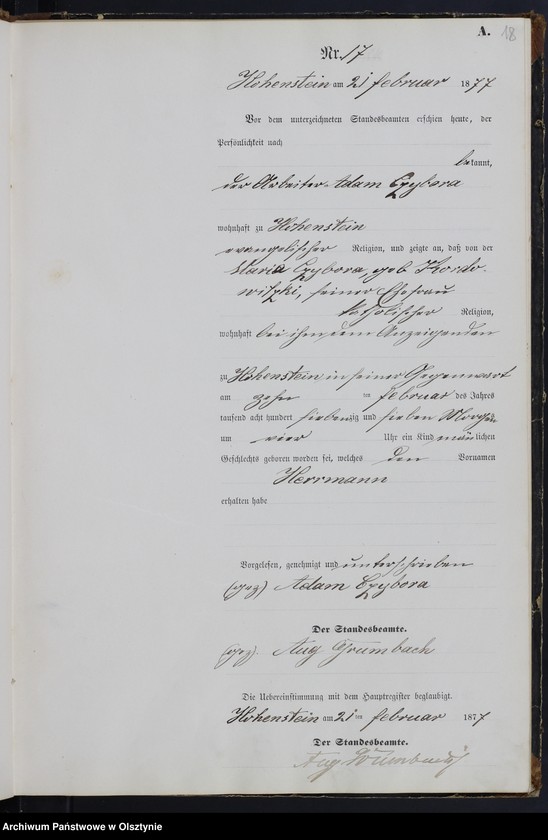 A. 18
Nr. 17
Hohenstein am 21 februar 1877
Vor dem unterzeichneten Standesbeamten erschien heute, der
Persönlichkeit nach
bekannt,
der Arbeiter Adam Czybora
wohnhaft zu Hohenstein
evangelischer Religion, und zeigte an, daß von der
Maria Czybora, geb Kordo-
witzki, seiner Ehefrau
katholischer Religion,
wohnhaft bei ihm dem Anzeigenden
zu Hohenstein in seiner Gegenwart
am zehn ten februar des Jahres
tausend acht hundert siebenzig und sieben Morgens
um vier Uhr ein Kind männlichen
Geschlechts geboren worden sei, welches den Vornamen
Herrmann
erhalten habe
Vorgelesen, genehmigt und unterschrieben
(gez) Adam Czybora
Der Standesbeamte.
(gez). Aug Grumbach
Die Uebereinstimmung mit dem Hauptregister beglaubigt.
Hohenstein am 21 ten februar 1877
Der Standesbeamte.
Aug Grumbach
Archiwum Państwowe w Olsztynie